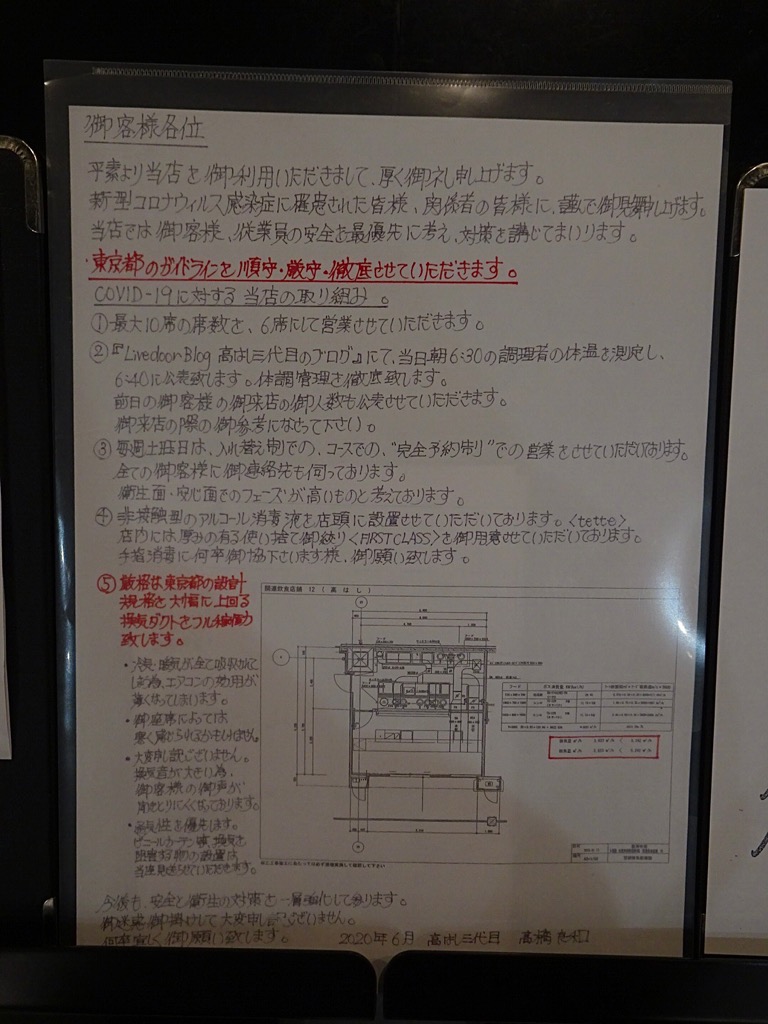 御客様各位
平素より当店を御利用いただきまして、厚く御礼申し上げます。
新型コロナウィルス感染症に罹患された皆様、関係者の皆様に、謹んで御見舞申し上げます。
当店では御客様、従業員の安全を最優先に考え、対策を講じてまいります。
・東京都のガイドラインを順守・厳守・徹底させていただきます。
COVID-19に対する当店の取り組み。
①最大10席の席数を、6席にして営業させていただきます。
②『Livedoor Blog 高はし三代目のブログ』にて、当日朝6:30の調理者の体温を測定し、
6:40に公表致します。体調管理を徹底致します。
前日の御客様の御来店の御人数も公表させていただきます。
御来店の際の御参考になさって下さい。
③毎週土曜日は、入れ替え制での、コースでの、"完全予約制"での営業をさせていただいております。
全ての御客様に御連絡先も伺っております。
衛生面・安心面でのフェーズが高いものと考えております。
④非接触型のアルコール消毒液を店頭に設置させていただいております。<tette>
店内には厚みの有る使い捨て御絞り<FIRST CLASS>を御用意させていただいております。
手指消毒に何卒御協力下さいます様、御願い致します。
⑤厳格な東京都の設計
規格を大幅に上回る
換気ダクトをフル稼働
致します。
・冷気・暖気が全て吸収されて
しまう為、エアコンの効用が
薄くなってしまいます。
・御座席によっては
寒く感じられるかもしれません。
・大変申し訳ございません。
換気音が大きい為、
御客様の御声が
聞きとりにくくなっております。
・換気性を優先します。
ビニールカーテン等、換気を
阻害する物の設置は
当店見送らせていただきます。
関連飲食店舗 12 (高はし)
今後も、安全と衛生の対策を一層強化して参ります。
御迷惑御掛けして大変申し訳ございません。
何卒宜しく御願い致します。
2020年6月 高はし三代目 高橋